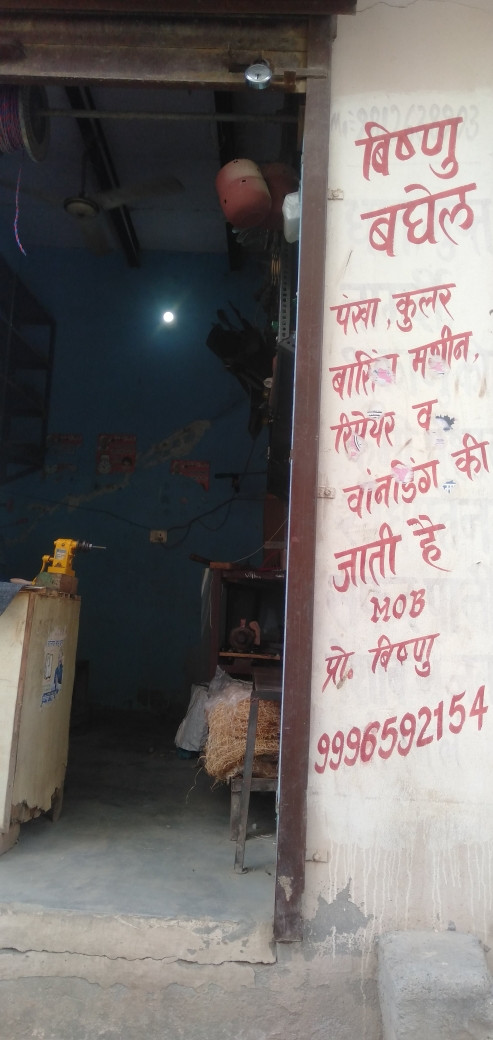 बिष्णु
बघेल
पंखा, कुलर
वाशिंग मशीन,
रिपेयर व
वांनडिंग की
जाती है
MOB
प्रो. बिष्णु
9996592154